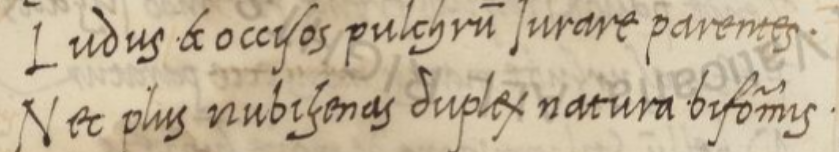 Ludus & occisos pulchrū Iurare parentes.
Nec plus nubigenas duplex natura bifōmis.